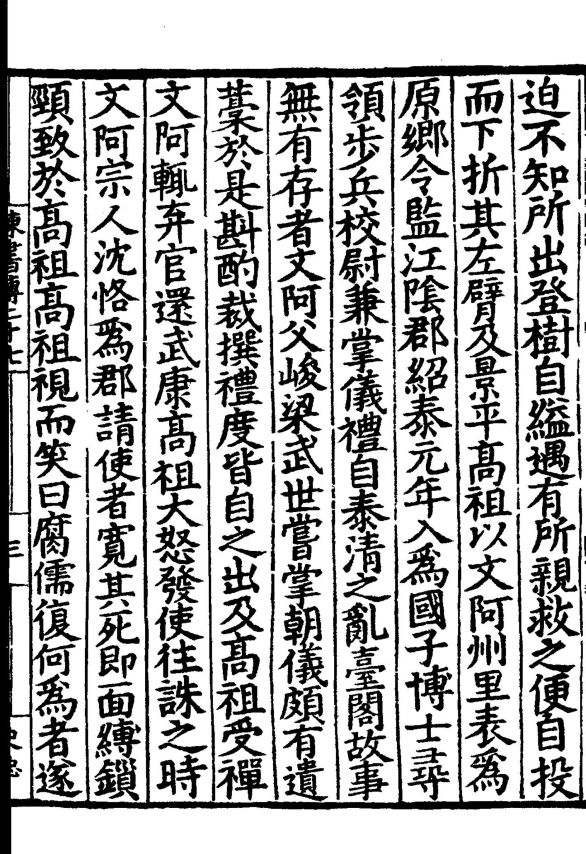 迫不知所出登樹自縊遇有所親救之便自投
而下折其左臂及景平高祖以文阿州里表爲
原鄉令監江陰郡紹泰元年入爲國子博士尋
領步兵校尉兼掌儀禮自泰清之亂臺閣故事
無有存者文阿父峻梁武世嘗掌朝儀頗有遺
藁於是斟酌裁撰禮度皆自之出及高祖受禪
文阿輒弃官還武康高祖大怒發使往誅之時
文阿宗人沈恪爲郡請使者寛其死即面縛鎖
頸致於高祖高祖視而笑曰腐儒復何爲者遂
陳書傳二十七
三